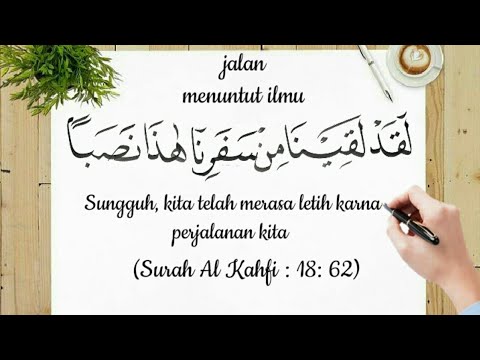 jalan
menuntut ilmu
لَقَدْ لَقِيْنَا مِنْ سَفَرِنَا هٰذَا نَصَبًا
Sungguh, kita telah merasa letih karna
perjalanan kita
(Surah Al Kahfi : 18: 62)